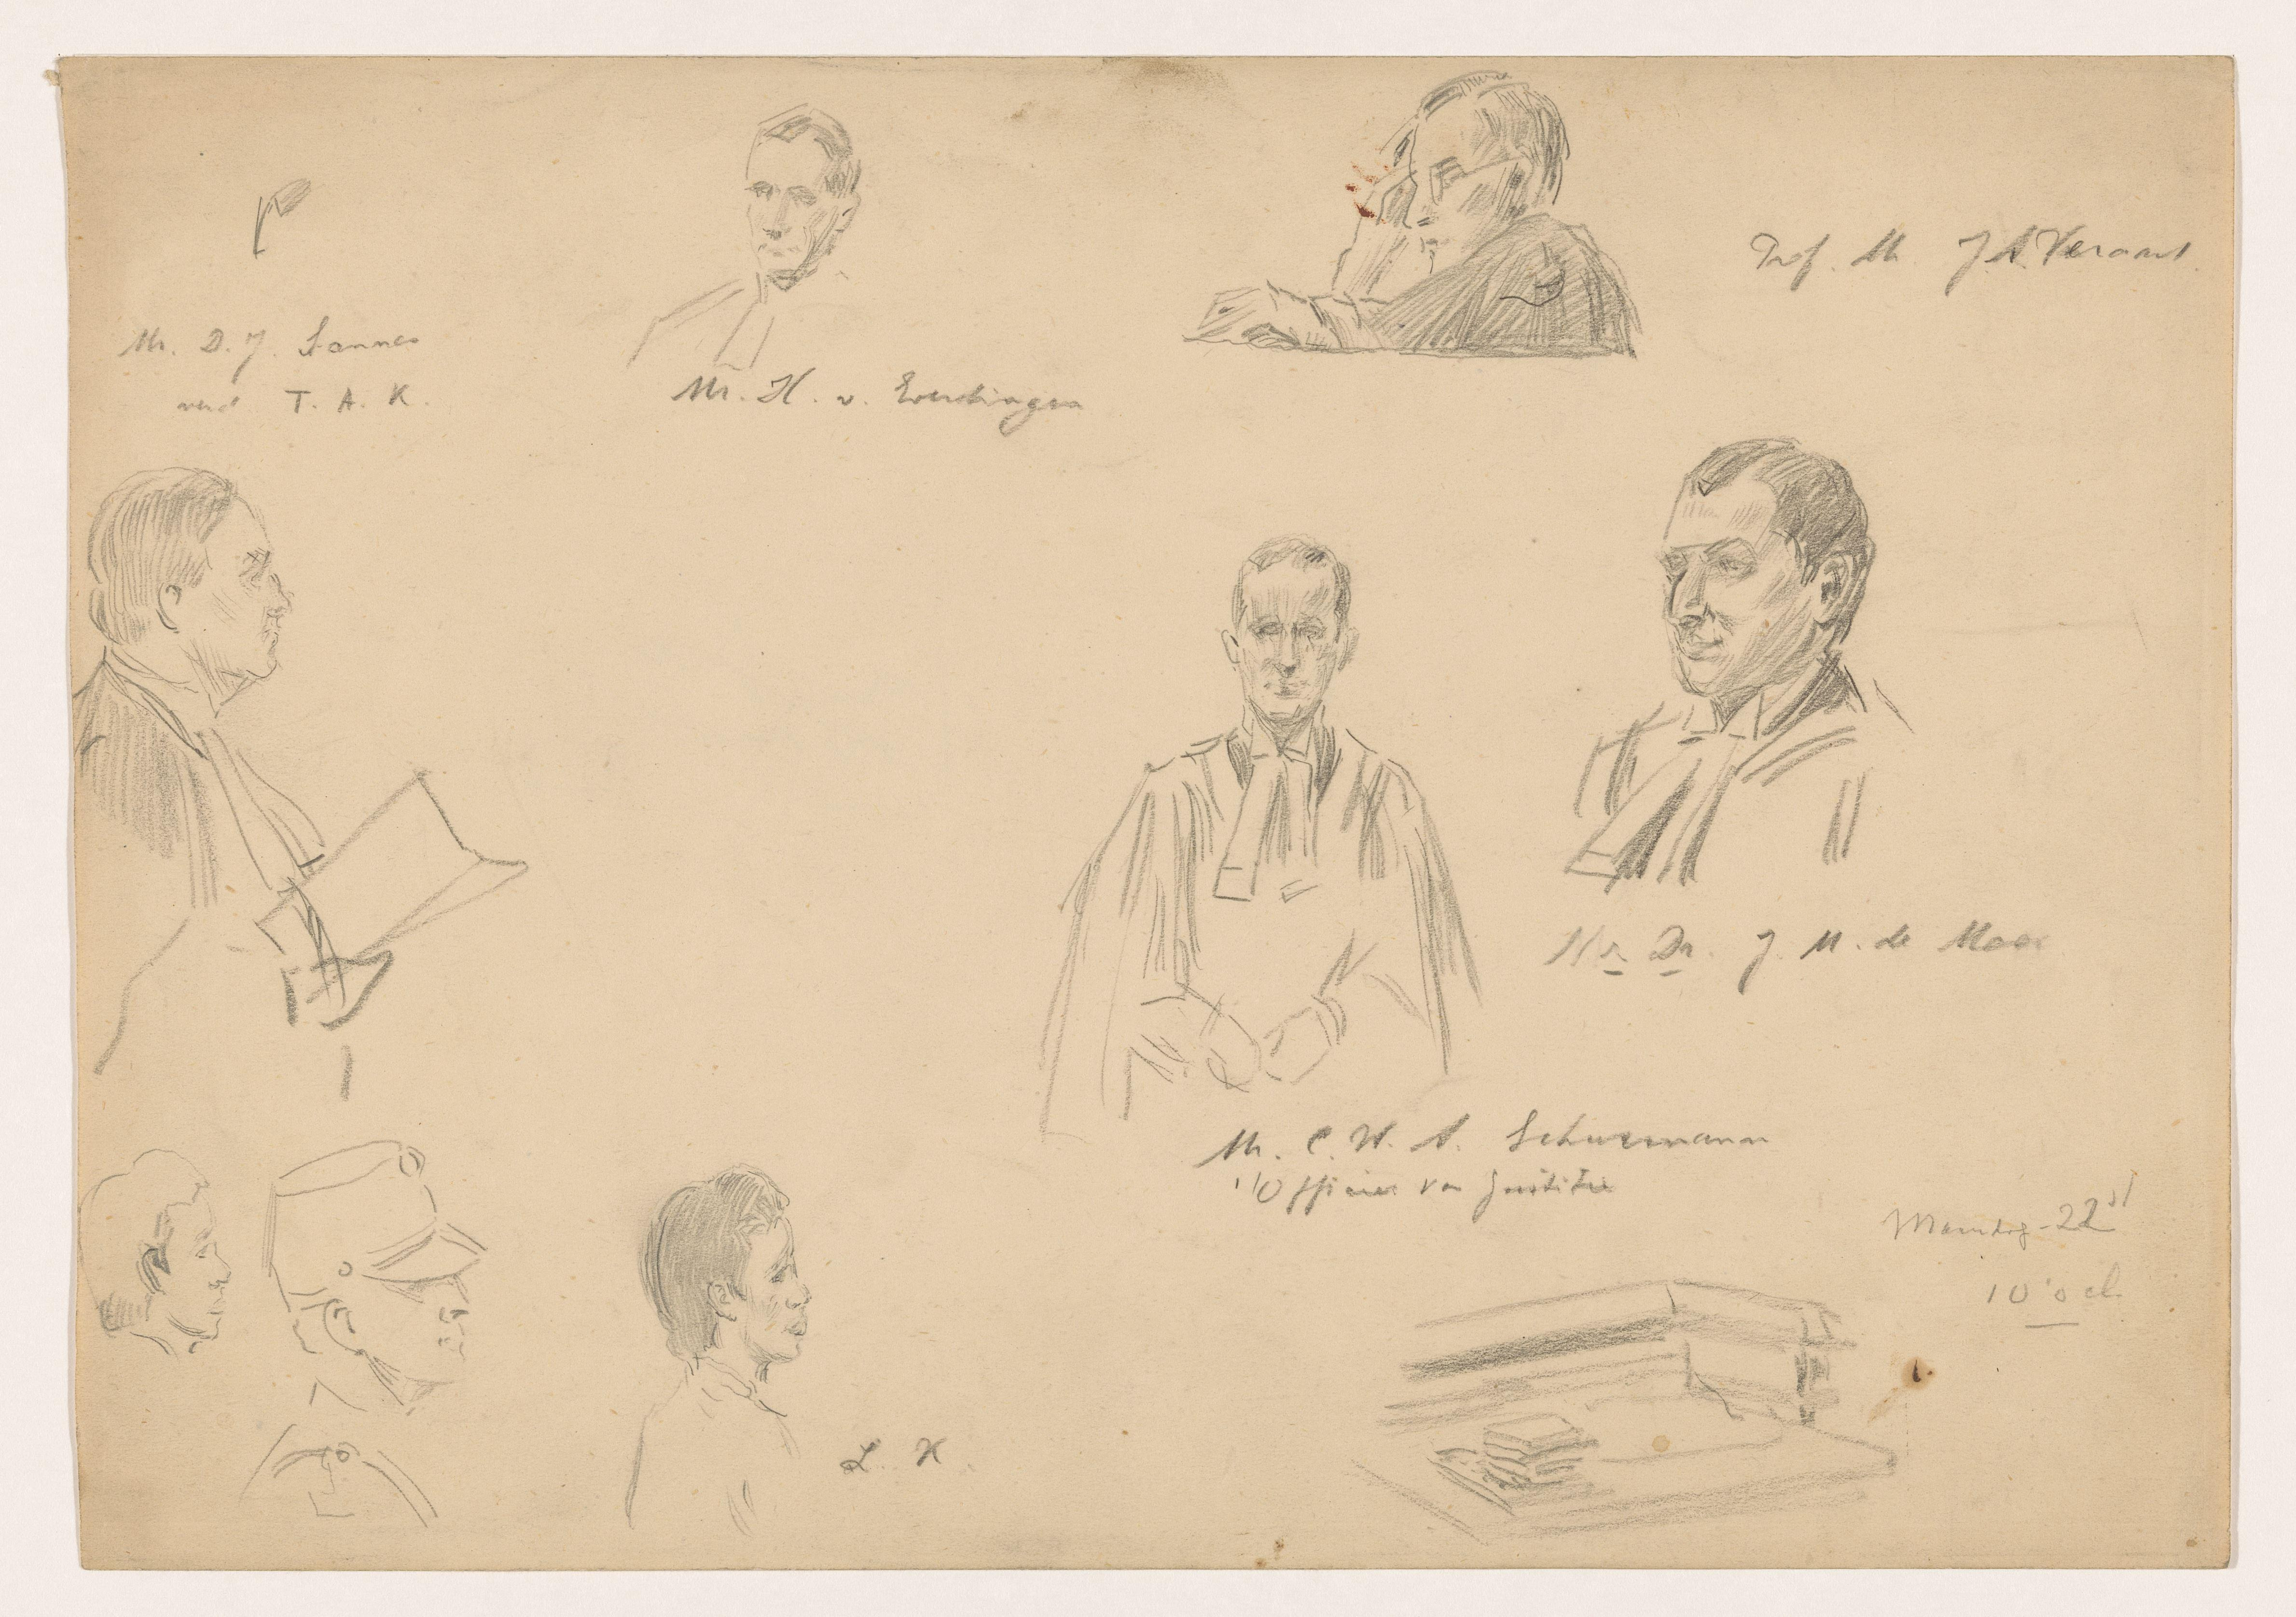 Prof. Mr. J. A. Veraart
Mr. D. J. Sannes
verd T. A. K.
Mr. H. v. Everdingen
Mr. Dr. J. M. de Moor
Mr. C. W. A. Schurmann
Officier van Justitie
Maandag 22st
10 o cl.
L. K